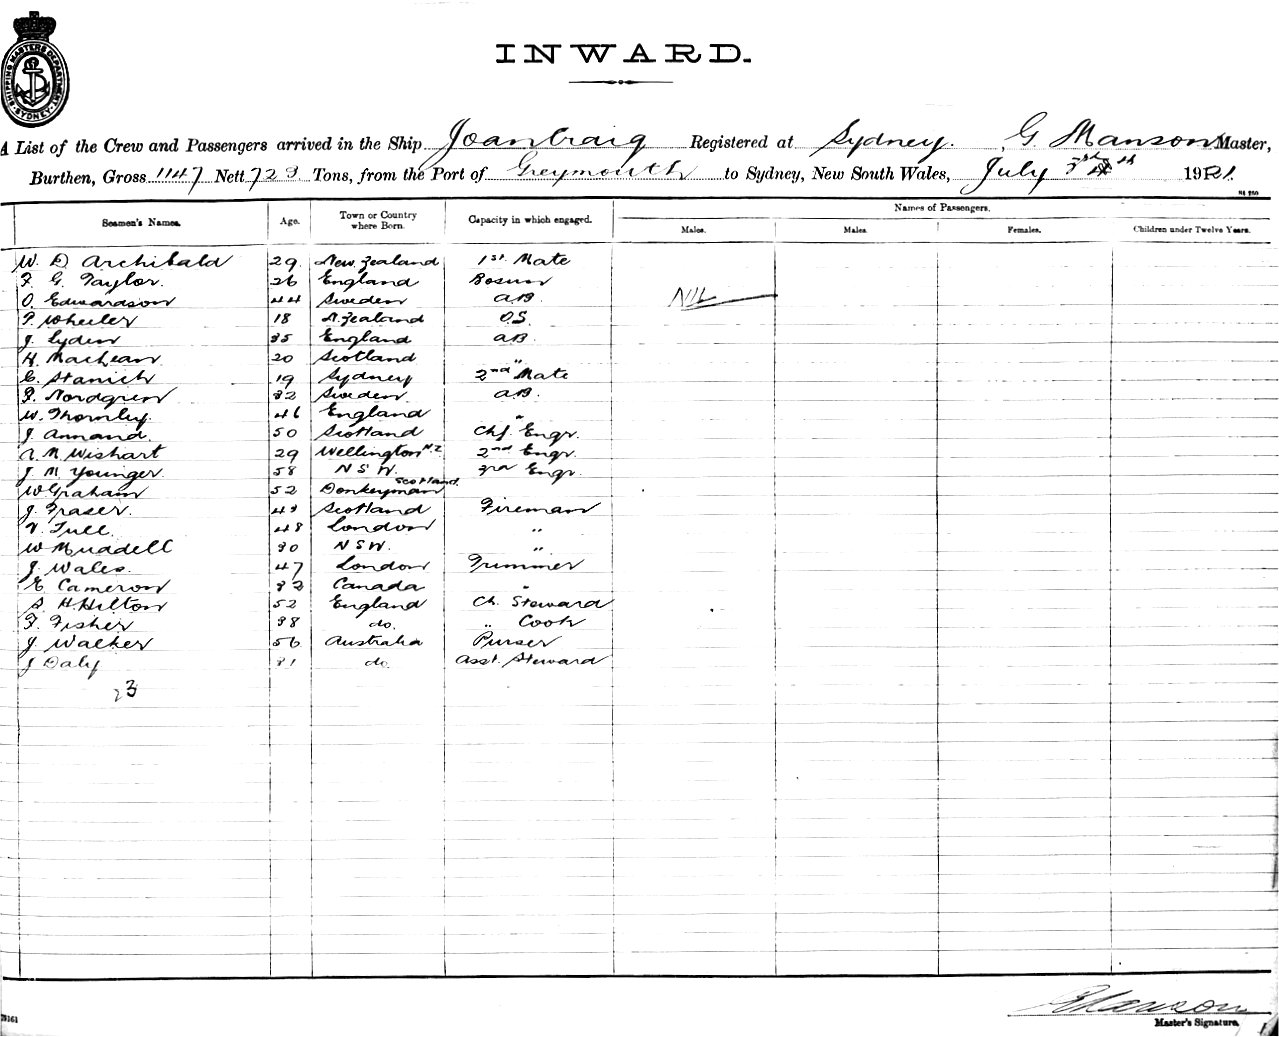 SHIPPING MASTERS DEPARTMENT SYDNEY
INWARD.
A List of the Crew and Passengers arrived in the Ship Joan Craig Registered at Sydney. G. Manson Master,
Burthen, Gross 1147 Nett 723 Tons, from the Port of Greymouth to Sydney, New South Wales, July 3rd 1921.
Names of Passengers.
Seamen's Names. Age. Town or Country where Born. Capacity in which engaged. Males. Males. Females. Children under Twelve Years.
W. D Archibald 29 New Zealand 1st Mate
F. G. Taylor. 26 England Bosun
O. Edwardson 44 Sweden AB. NIL
P. Wheeler 18 N. Zealand O.S.
J. Lyden 35 England AB.
H. MacLean 20 Scotland "
C. Stanich 19 Sydney 2nd Mate
F. Nordgren 32 Sweden AB.
W. Thornley. 46 England "
J. Annand. 50 Scotland Chf Engr.
A. M. Wishart 29 Wellington N.Z. 2nd Engr.
J. M. Younger. 58 N S W. 3rd Engr.
W Graham 52 Donkeyman Scotland.
J. Fraser. Scotland Fireman
Tull. 48 London "
W Muddell 30 N S W. "
J. Wales. 47 London Trimmer
E. Cameron 32 Canada "
S. H. Hilton 52 England Ch. Steward
F. Fisher 38 do. " Cook
J. Walker 56 Australia Purser
J Daly 31 do. Asst. Steward
23
G Manson
Master's Signature.